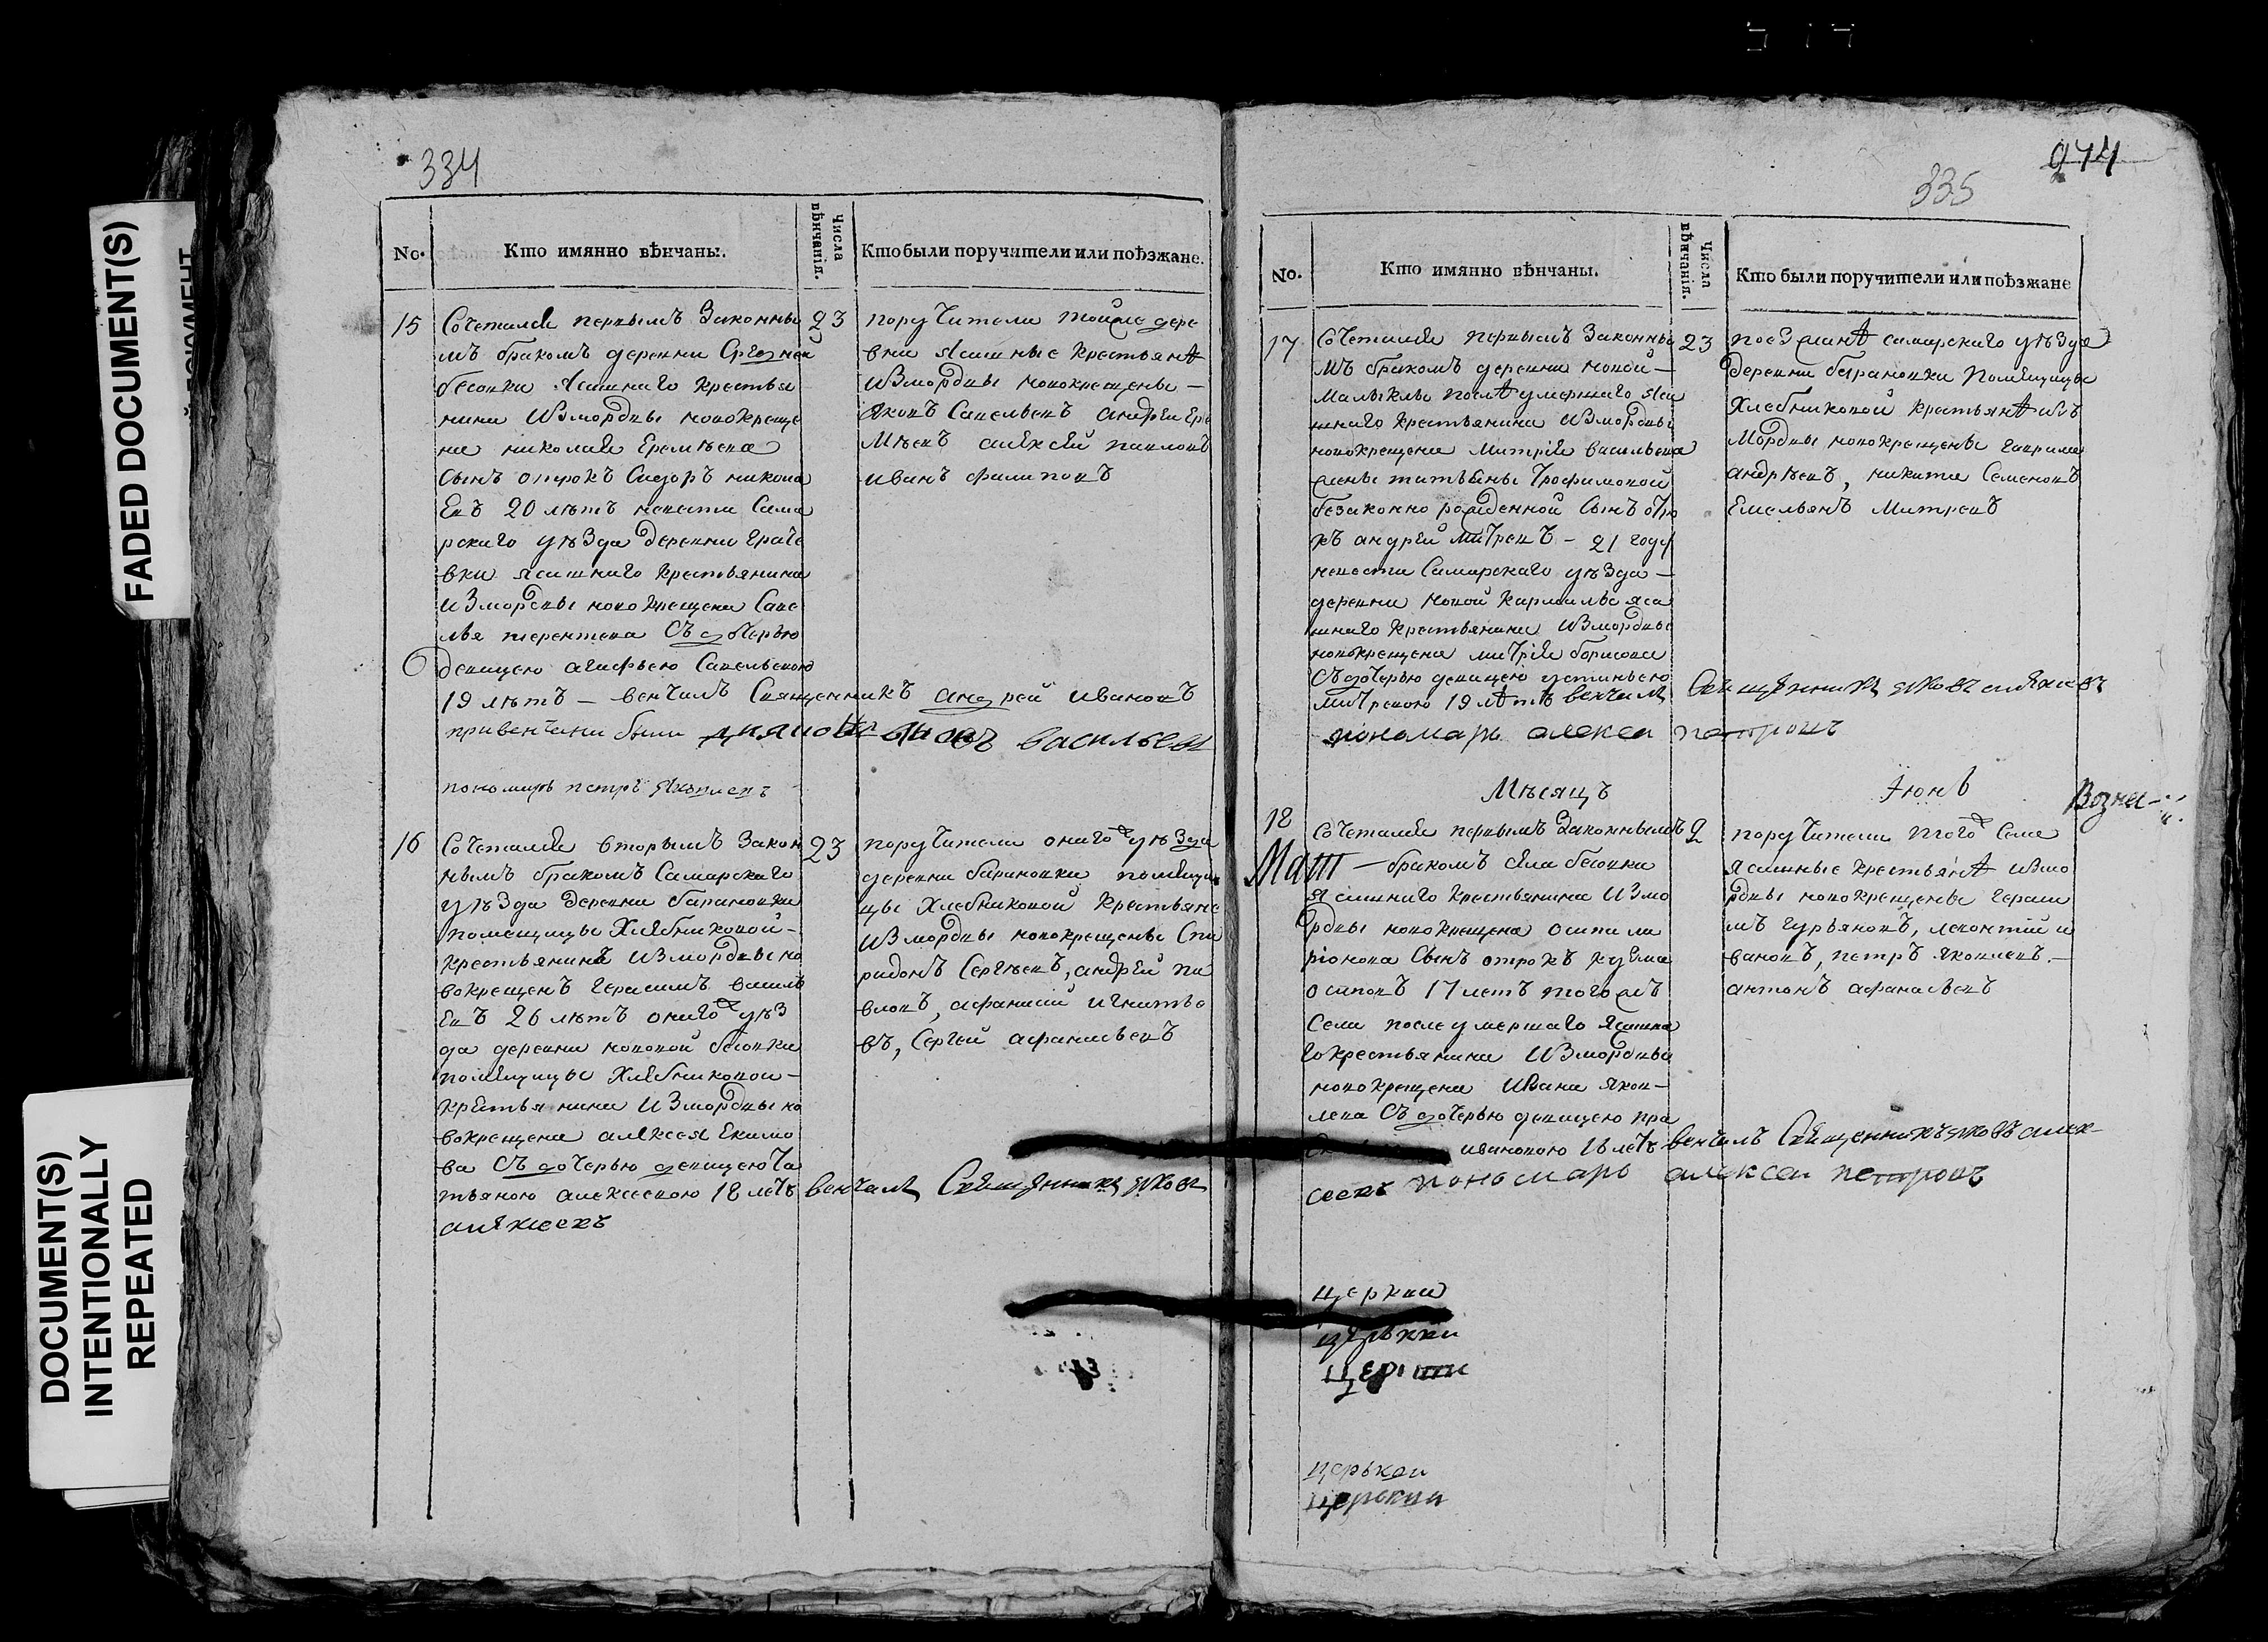 FADED DOCUMENT(S)
DOCUMENT(S)
INTENTIONALLY
REPEATED
334
No. Кто имянно вѣнчаны. Числа вѣнчанія. Кто были поручители или поѣзжане.
15 Сочетался первымъ законны 23
мъ бракомъ деревни
бесовки ясашнаго крестья
нина измордвы новокреще
на николая Еремѣева
сынъ отрокъ Сидоръ никола
Евъ 20 лѣтъ невеста Сама
рскаго уѣзда деревни
вки ясашнаго крестьянина
измордвы новокрещена Саве
лья терентева съ дочерью
девицею агафьею Савельевою
19 лѣтъ — венчалъ Священникъ андрей ивановъ
привенчани были васильевъ
пономарь петръ Яковлевъ
поручители тойже дере
вни ясашные крестьянѣ
измордвы новокрещены —
яковъ Савельевъ андрей Ере
мѣевъ алексей павловъ
иванъ филиповъ
16 Сочетался вторымъ закон 23
нымъ бракомъ Самарскаго
уѣзда деревни барановки
помещицы Хлебниковой -
крестьянинъ измордвы но
вокрещенъ герасимъ василь
Евъ 26 лѣтъ онаго уѣз
да деревни новой бесовки
помещицы Хлебниковои -
крестьянина измордвы но
вокрещена алексея Екимо
ва съ дочерью девицею та
тьяною алексеевою 18 летъ венчалъ Священникъ яковъ
алексеевъ
поручители онаго уѣзда
деревни барановки помещи
цы Хлебниковой крестьяне
измордвы новокрещены Спи
ридонъ Сергѣевъ, андрей па
вловъ, афанасий игнатье
въ, Сергей афанасьевъ
974
335
No. Кто имянно вѣнчаны. Числа вѣнчанія. Кто были поручители или поѣзжане
17 Сочетался первымъ законны 23
мъ бракомъ деревни новой —
малыклы послѣ умершаго яса
шнаго крестьянина измордвы
новокрещена митрия васильева
жены татьяны трофимовой
безаконно рожденной сынъ отро
къ андрей митревъ - 21 году
невеста Самарскаго уѣзда —
деревни новой яса
шнаго крестьянина измордвы
новокрещена митрия борисова
съ дочерью девицею устиньею
митревою 19 лѣтъ венчалъ Священникъ яковъ алексеевъ
пономарь алексеи петровъ
поезжанѣ самарскаго уѣзда
деревни барановки помещицы
Хлебниковой крестьянѣ изъ
мордвы новокрещены гаврила
андрѣевъ, никита Семеновъ
Емельянъ митревъ
Мѣсяцъ Июнь
Возне
18 Сочетался первымъ законнымъ 2
Маш — бракомъ села бесовки
ясашнаго крестьянина измо
рдвы новокрещена осипа ла
рионова сынъ отрокъ кузма
осиповъ 17 летъ тогожъ
села после умершаго ясашна
го крестьянина измордвы
новокрещена ивана яков-
лева съ дочерью девицею пра
ивановою 18 летъ венчалъ Священникъ яковъ алек-
сеевъ пономарь алексеи петровъ
поручители тогожъ села
ясашные крестьянѣ измо
рдвы новокрещены гераси
мъ гурьяновъ, леонтий и
вановъ, петръ яковлевъ.
антонъ афанасьевъ
церкви
церькви
церькви
церкви